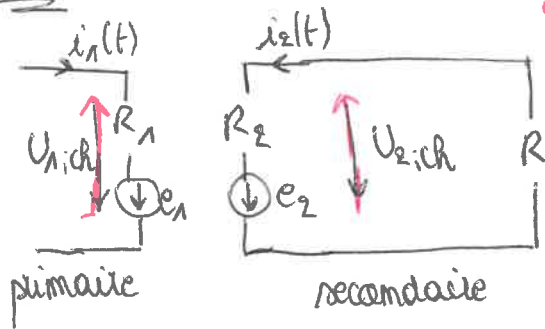 i₁(t) i₂(t)
R₁ R₂
U₁,ch U₂,ch R
e₁ e₂
primaire secondaire